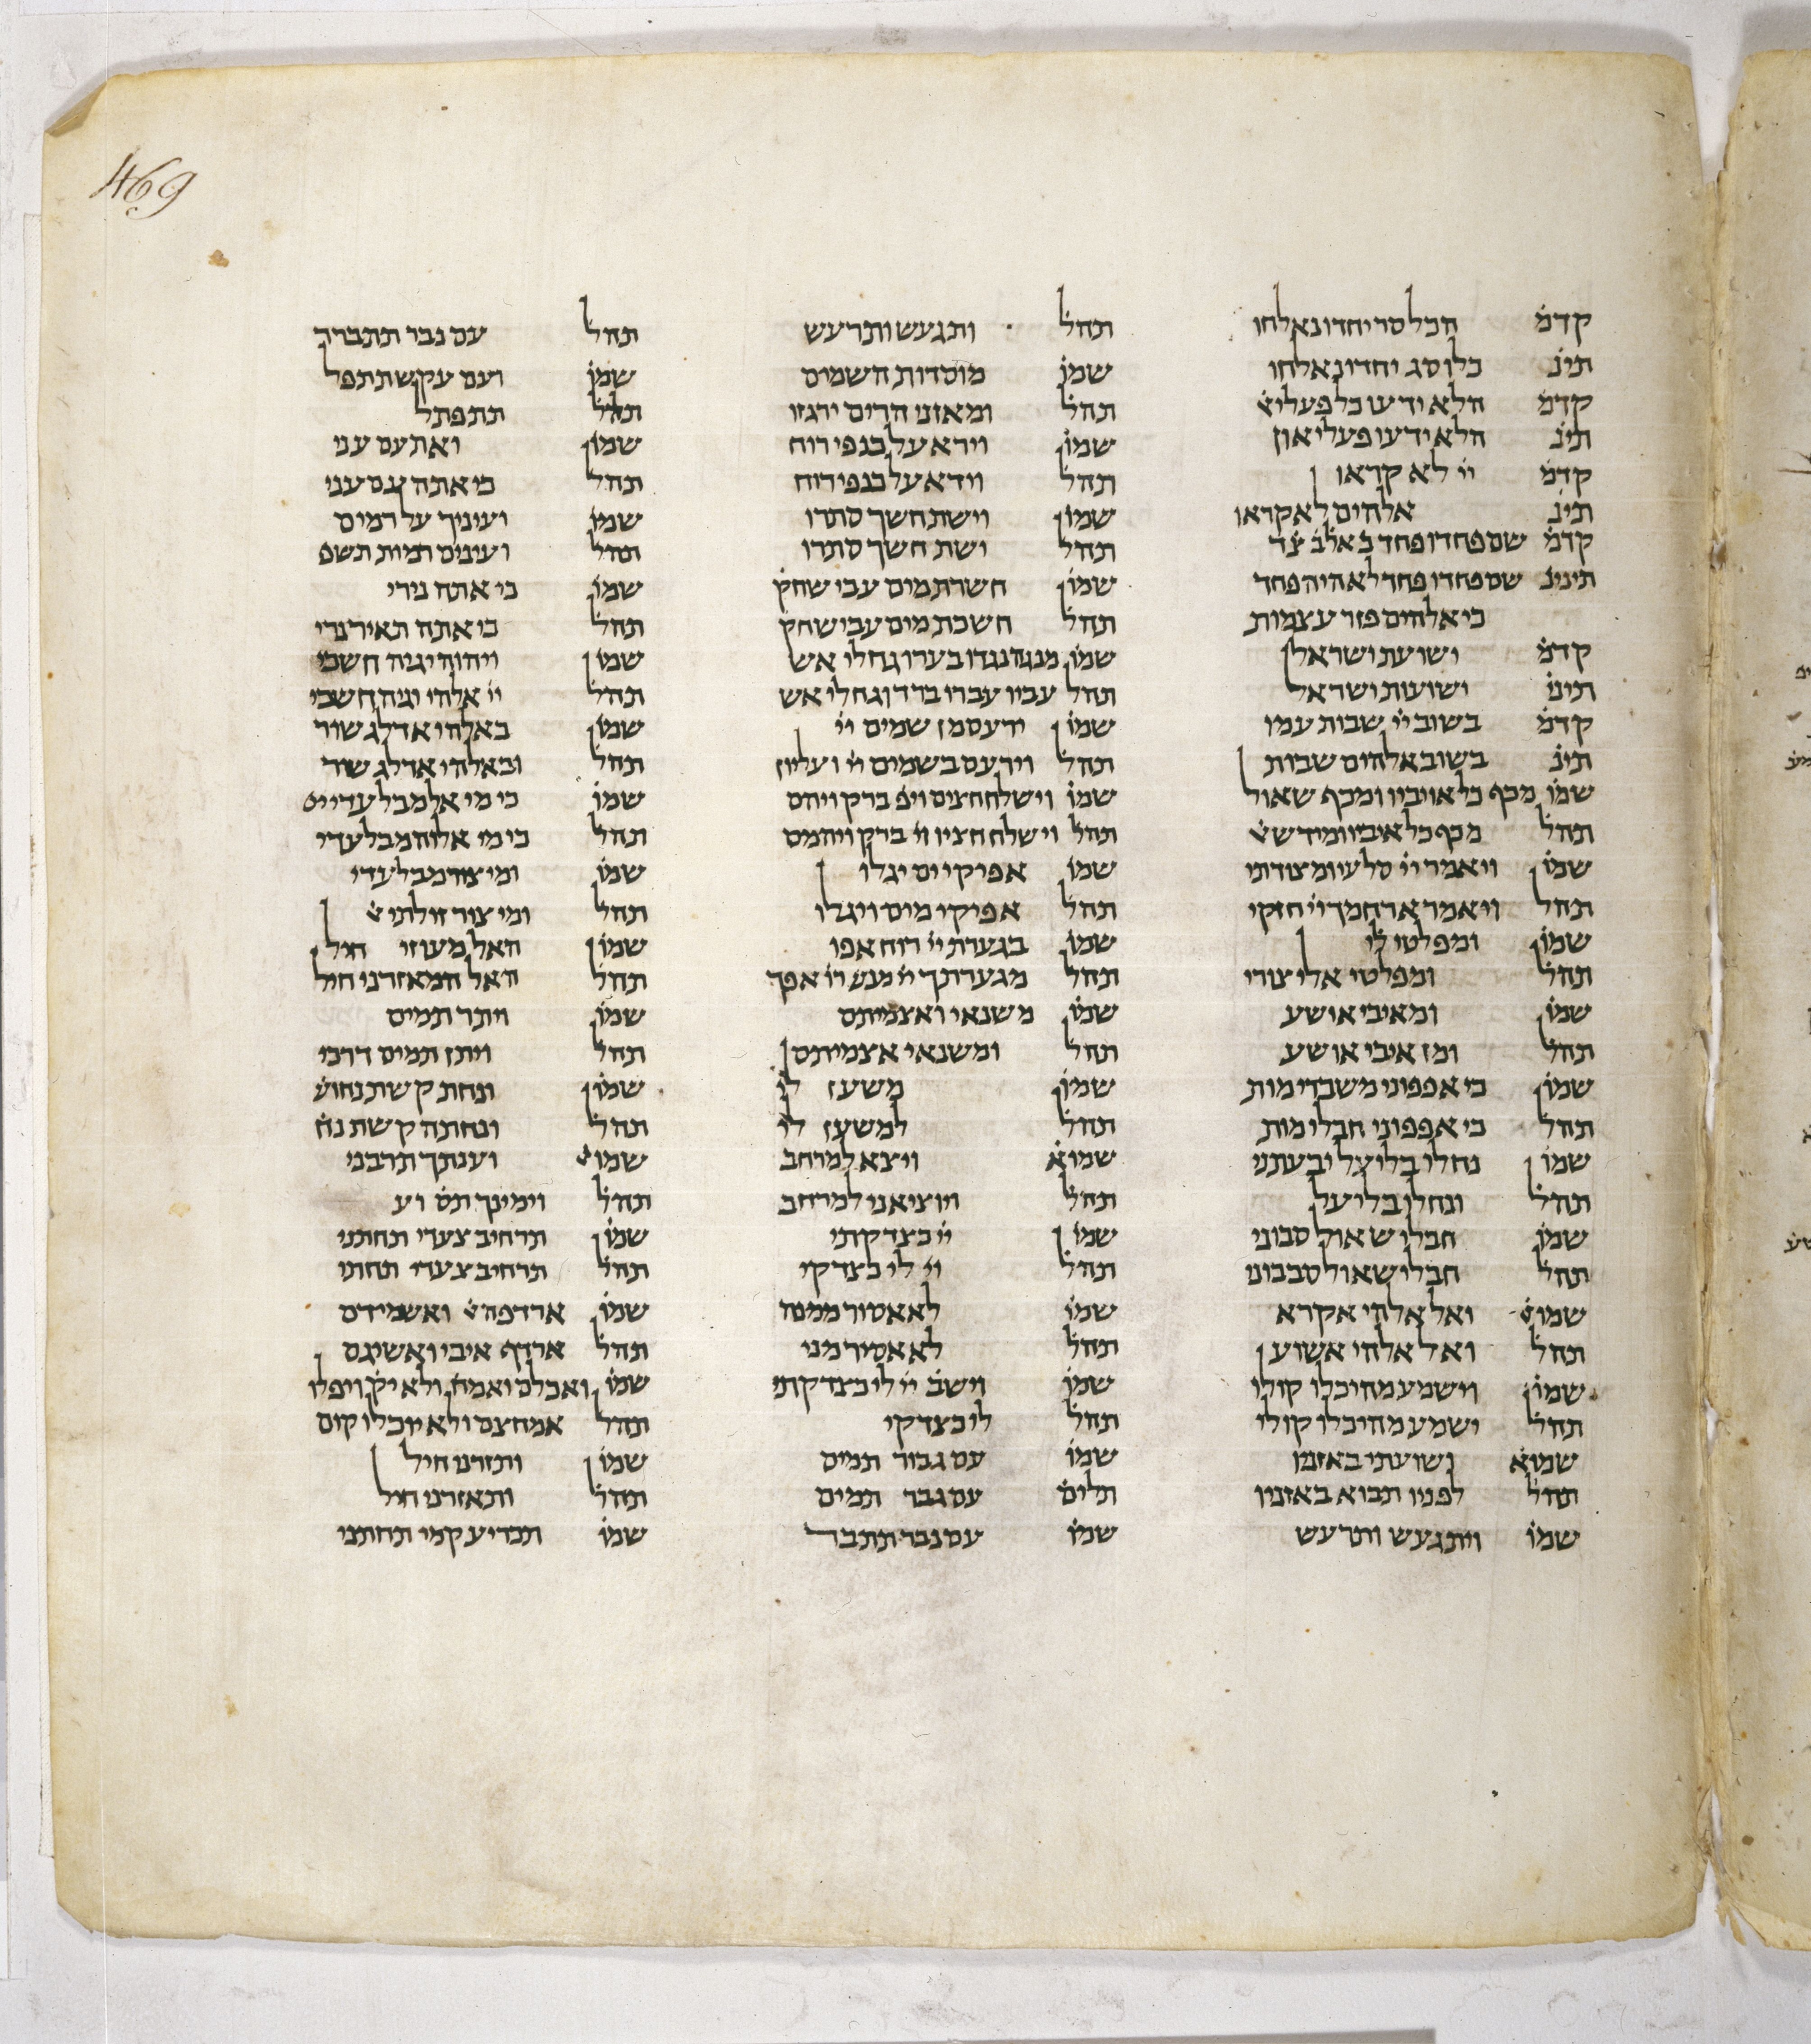 469
קדמ הכל סר יחדו נאלחו
תינ כלו סג יחדיו נאלחו
קדמ הלא ידעו כל פעלי א
תינ הלא ידעו פעלי און
קדמ יי לא קראו
תינ אלהים לא קראו
קדמ שם פחדו פחד כ אלב צד
תיניג שם פחדו פחד לא היה פחד
כי אלהים פזר עצמות
קדמ ישועת ישראל
תינ ישועות ישראל
קדמ בשוב יי שבות עמו
תינ בשוב אלהים שבות
שמו מכף כל אויביו ומכף שאול
תהל מכף כל איביו ומיד ש
שמו ויאמר יי סלעי ומצודתי
תהל ויאמר ארחמך יי חזקי
שמו ומפלטי לי
תהל ומפלטי אלי צורי
שמו ומאיבי אושע
תהל ומן איבי אושע
שמו כי אפפוני משברי מות
תהל כי אפפוני חבלי מות
שמו נחלי בליעל יבעתני
תהל ונחלי בליעל
שמו חבלי שאול סבוני
תהל חבלי שאול סבבוני
שמו ואל אלהי אקרא
תהל ואל אלהי אשוע
שמו וישמע מהיכלו קולי
תהל ישמע מהיכלו קולי
שמוא ושועתי באזניו
תהל לפניו תבוא באזניו
שמו ויתגעש ותרעש
תהל ותגעש ותרעש
שמו מוסדות השמים
תהל ומאזני הרים ירגזו
שמו וירא על כנפי רוח
תהל וידא על כנפי רוח
שמו וישת חשך סתרו
תהל ישת חשך סתרו
שמו חשרת מים עבי שחק
תהל חשכת מים עבי שחק
שמו מנגה נגדו בערו גחלי אש
תהל עביו עברו ברד וגחלי אש
שמו ירעם מן שמים יי
תהל וירעם בשמים יי ועליון
שמו וישלח חצים ויפ ברק ויהם
תהל וישלח חציו וי ברק ויהמם
שמו אפיקי ים יגלו
תהל אפיקי מים ויגלו
שמו בגערת יי רוח אפו
תהל מגערתך יי מנש רו אפך
שמו משנאי ואצמיתם
תהל ומשנאי אצמיתם
שמו משען לי
תהל למשען לי
שמוא ויצא למרחב
תהל ויוציאני למרחב
שמו יי כצדקתי
תהל יי לי כצדקי
שמו לא אסור ממנה
תהל לא אסיר מני
שמו וישב יי לי כצדקתי
תהל לי כצדקי
שמו עם גבור תמים
תלים עם גבר תמים
שמו עם נבר תתבר
תהל עם נבר תתברר
שמו ועם עקש תתפל
תהל תתפתל
שמו ואת עם עני
תהל כי אתה עם עני
שמו ועיניך על רמים
תהל ועינים רמות תשפ
שמו כי אתה נירי
תהל כי אתה תאיר נרי
שמו ויהוה יגיה חשכי
תהל יי אלהי יגיה חשכי
שמו באלהי אדלג שור
תהל ובאלהי אדלג שור
שמו כי מי אל מבלעדי יי
תהל כי מי אלוה מבלעדי
שמו ומי צור מבלעדי
תהל ומי צור זולתי
שמו האל מעוזי חיל
תהל האל המאזרני חיל
שמו ויתר תמים
תהל ויתן תמים דרכי
שמו ונחת קשת נחוש
תהל ונחתה קשת נח
שמו וענתך תרבני
תהל וימינך תס וע
שמו תרחיב צעדי תחתני
תהל תרחיב צעדי תחתי
שמו ארדפה א ואשמידם
תהל ארדף איבי ואשיגם
שמו ואכלם ואמח ולא יק ויפלו
תהל אמחצם ולא יוכלו קום
שמו ותזרני חיל
תהל ותאזרני חיל
שמו תכריע קמי תחתני